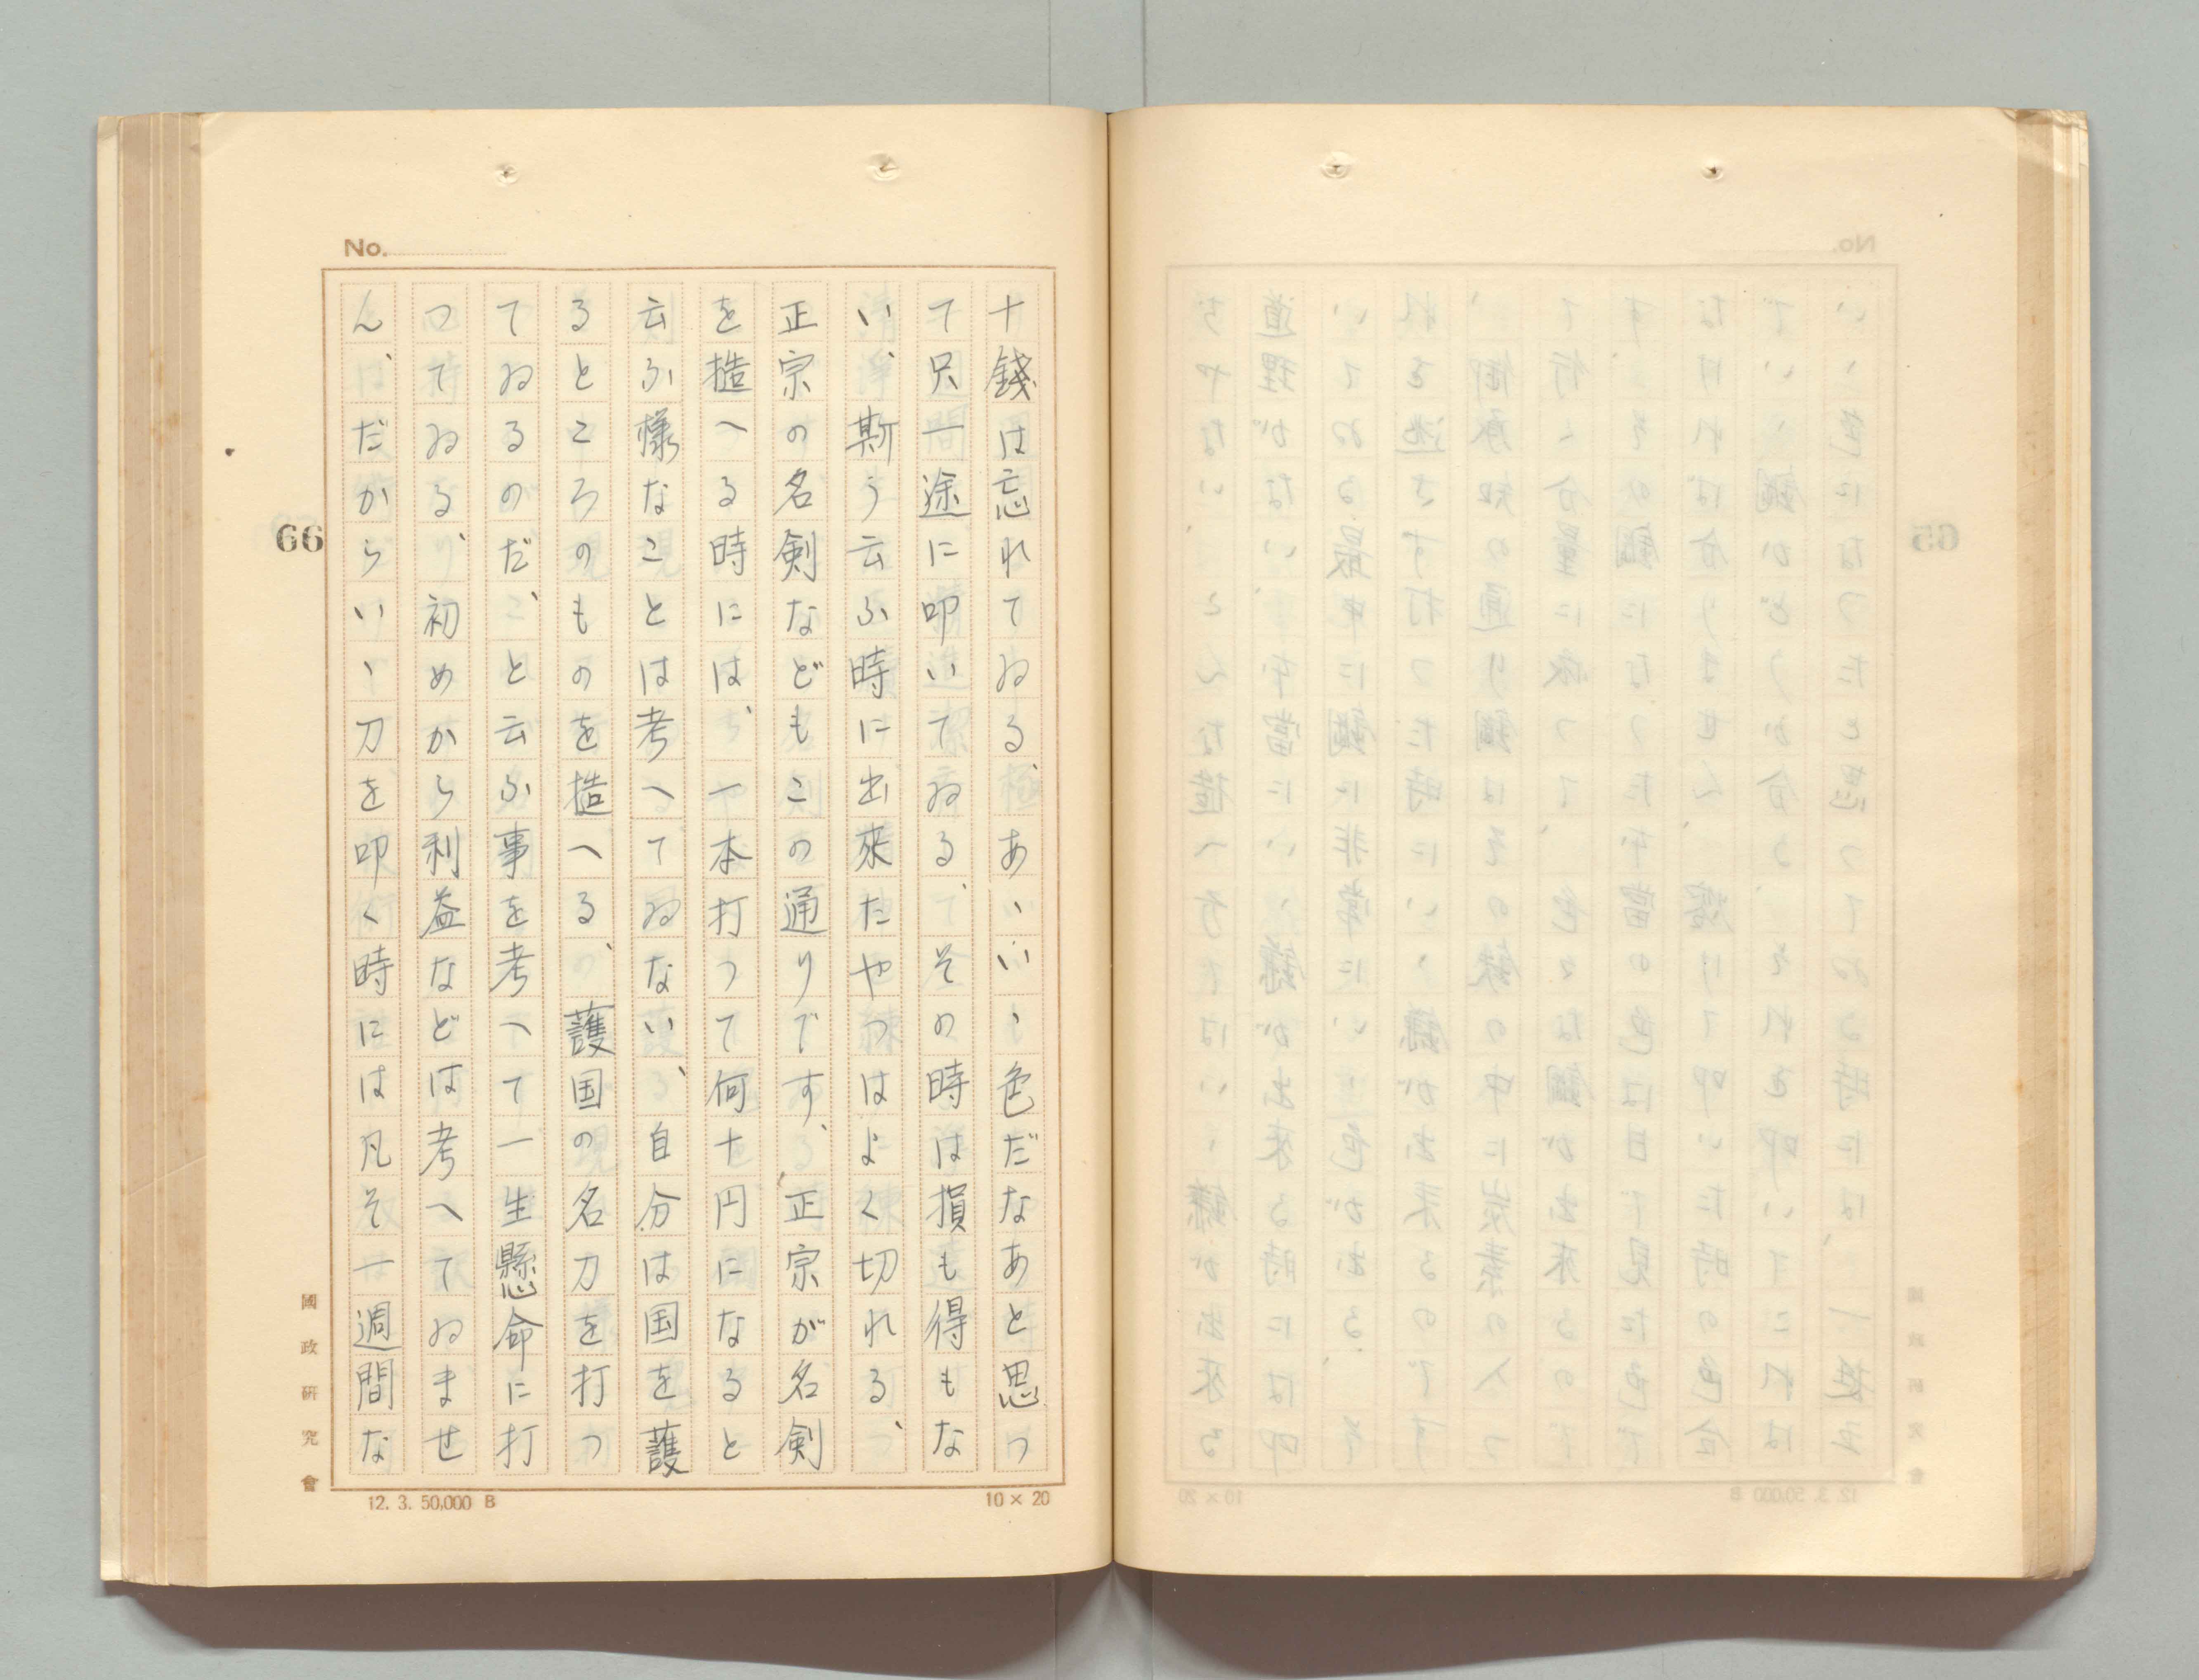 No.
十錢は忘れてゐる、あゝいゝ色だなあと思つ
て只一途に叩いてゐる、その時は損も得もな
い、斯う云ふ時に出來たやつはよく切れる、
正宗の名剣などもこの通りです、正宗が名剣
を造へる時には、一本打つて何十円になると
云ふ様なことは考へてゐない、自分は国を護
るところのものを造へる、護国の名刀を打つ
てゐるのだ、と云ふ事を考へて一生懸命に打
つてゐる、初めから利益などは考へてゐませ
ん、だからいゝ刀を叩く時には凡そ一週間な
66
國政研究會
12. 3. 50,000 B
10 × 20